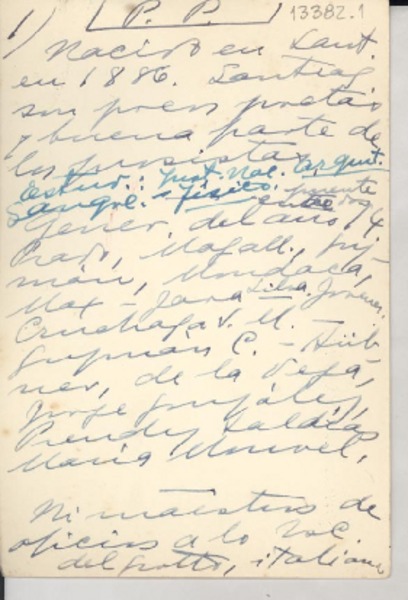 1) P. P. 13382.1
Nacido en Sant.
en 1886. Santiag.
son pocos poetas
y buena parte de
los prosistas.
Estud.: Inst. Nac. Arquit.
Sangre. - Físico.
puente
entre dos
gener. del año 14
Prado, Magall., Guz
mán, Mondaca,
Max - Jara Silva. Jóvenes:
Cruchaga S. M. -
Guzmán C. - Hüb-
ner, de la Vega,
Jorge González,
Préndez Saldías
María Monvel.
Ni maestros de
oficios a lo Vac.
del grotto, italiano